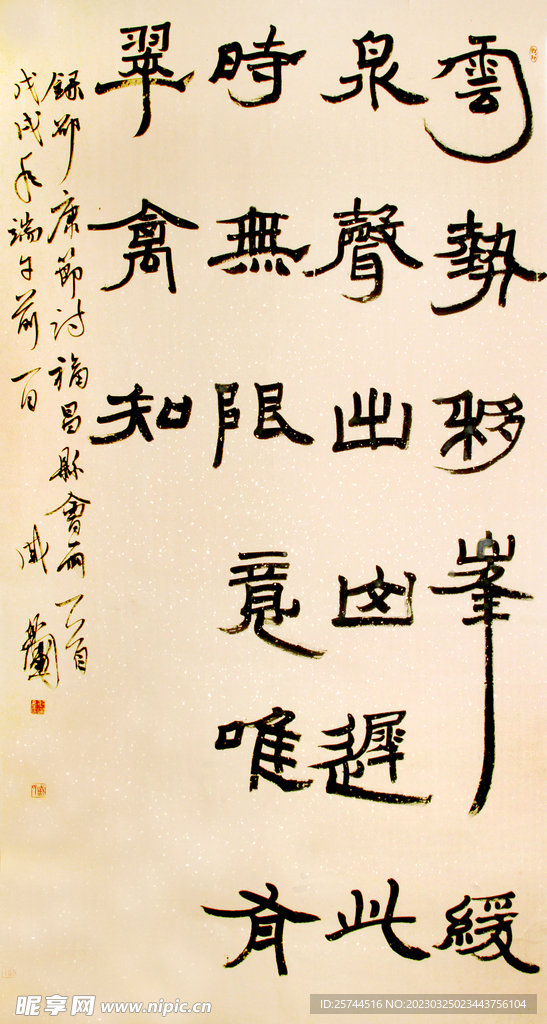 雲勢移峯緩
泉聲出遲此
時無限竟唯有
翠禽知
錄邵康節詩福昌縣會雨一首
戊戌年端午前一日
昵享网 www.nipic.cn
ID:25744516 NO:20230325023443756104